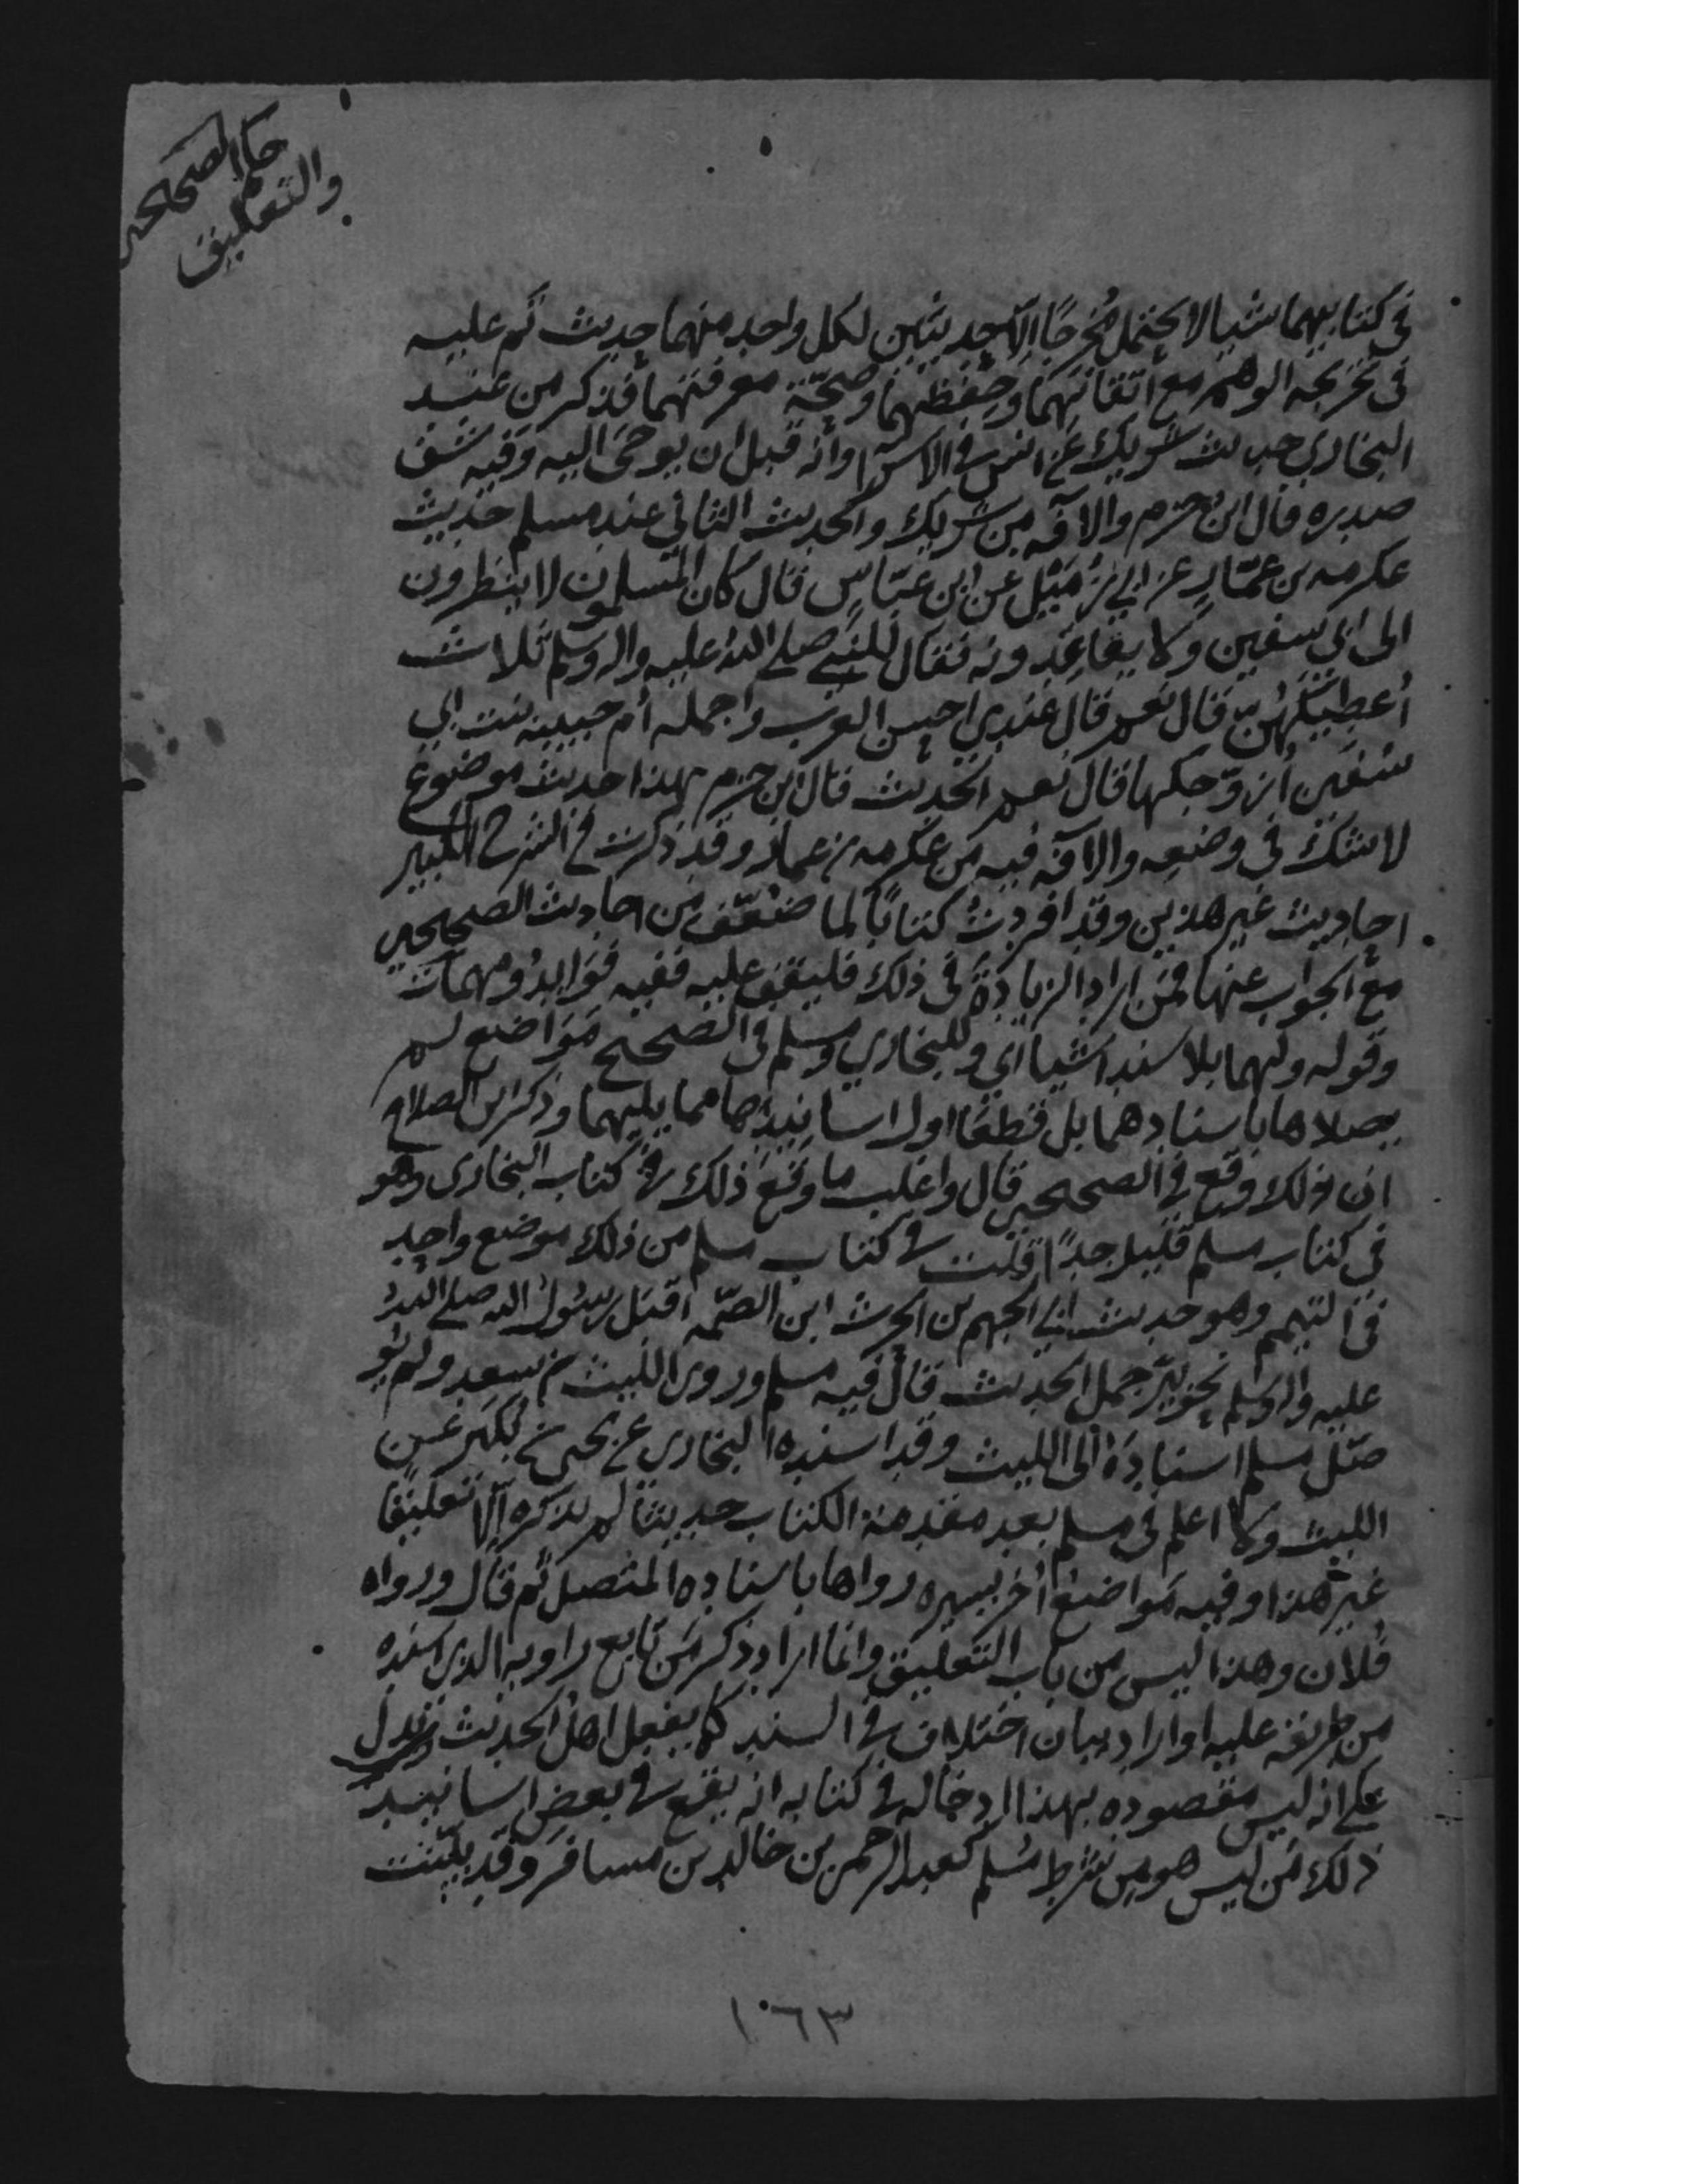 حكم الصحيحين
والتعليق
في كتابيهما شيا لا يحتمل مُخرجًا الّا حديثين لكل واحد منهما حديث تم عليه
في تخريجه الوهم مع اتقانهما وحِفظهما وصحّة معرفتهما فذكر من عند
البخاري حديث شريك عن انس في الاسرا وانه قبل ان يوحى اليه وفيه شق
صدره قال ابن حزم والافه من شريك والحديث الثاني عند مسلم حديث
عكرمه بن عمّار عن ابي زُمَيْل عن ابن عبّاس قال كان المسلمون لا ينظرون
الى ابي سفين ولا يقاعدونه فقال للنبي صلى الله عليه واله وسلم ثلاث
أعطنيهن قال نعم قال عندي احسن العرب واجمله أم حبيبه بنت ابي
سفين ازوّجكها قال نعم الحديث قال ابن حزم هذا حديث موضوع
لا شك في وضعه والافه فيه من عكرمه بن عمار وقد ذكرت في الشرح الكبير
احاديث غير هذين وقد افردتُ كتابًا لما ضعّف من احاديث الصحيحين
مع الجواب عنها فمن اراد الزيادة في ذلك فليقف عليه ففيه فوايد ومهمات
وقوله ولهما بلا سند اشيا اي وللبخاري ومسلم في الصحيح مواضع لم
يصلاها باسنادهما بل قطعا اول اسانيدها مما يليهما وذكر ابن الصلاح
ان ذلك وقع في الصحيحين قال واغلب ما وقع ذلك في كتاب البخاري وهو
في كتاب مسلم قليل جدًا قلت في كتاب مسلم من ذلك موضع واحد
في التيمم وهو حديث ابي الجهم بن الحرث ابن الصّمه اقبل رسول الله صلى الله
عليه واله وسلم نحو بئر جمل الحديث قال فيه مسلم وروى الليث بن سعد ولم يو
صّل مسلم اسنادَهُ الى الليث وقد اسنده البخاري عن يحيى بن بكير عن
الليث ولا اعلم في مسلم بعد مقدمة الكتاب حديثًا لم يذكره الّا تعليقًا
غير هذا وفيه مواضع أخر يسيره رواها باسناده المتصل ثم قال ورواه
فلان وهذا ليس من باب التعليق وانما اراد ذكر من تابع راويه الذي اسنده
من طريقه عليه او اراد بيان اختلاف في السند كما يفعل اهل الحديث ويدل
على انه ليس مقصوده بهذا ادخاله في كتابه انه يقع في بعض اسانيد
ذلك من ليس هو من شرط مسلم كعبد الرحمن بن خالد بن مسافر وقد بيّنت
١٠٦٣